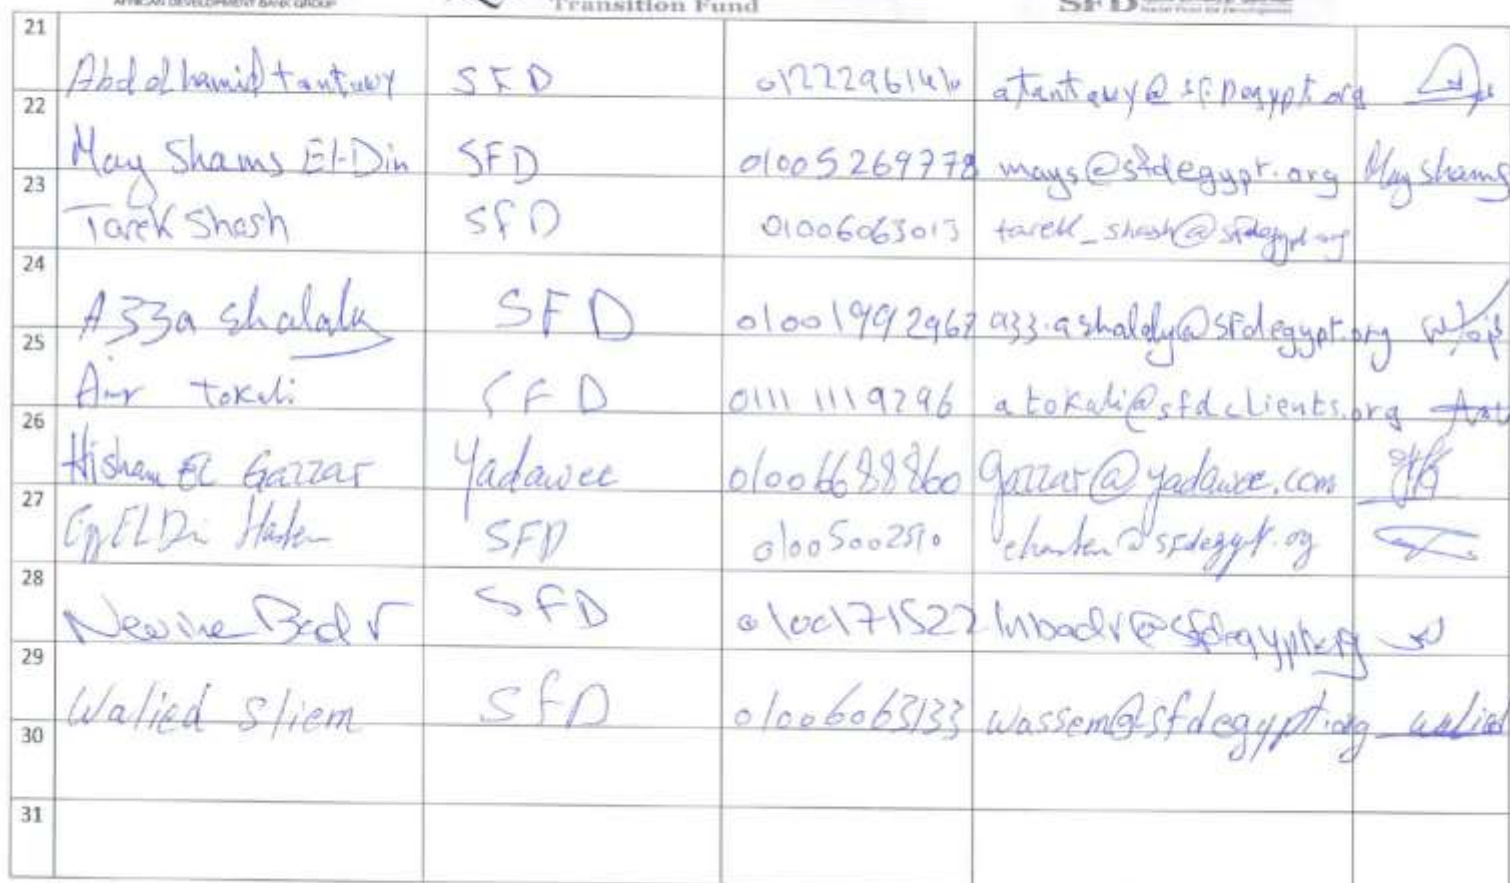 AFRICAN DEVELOPMENT BANK GROUP
Transition Fund
SFD
21 Abdelhamid tantawy SFD 01222961410 atantawy@sfdegypt.org
22 May Shams El-Din SFD 01005269778 mays@sfdegypt.org May Shams
23 Tarek Shash SFD 01006063013 tarek_shash@sfdegypt.org
24 Azza Shalaly SFD 01001992967
25 Amr tokali SFD 01111119296 atokali@sfdclients.org
26 Hisham El Gazzar Yadawee 01006688860 gazzar@yadawee.com
27 SFD 01005002510
28 Nevine Badr SFD 01001715221 nbadr@sfdegypt.org
29 Walied Sliem SFD 01006063133 wassem@sfdegypt.org walied
30
31